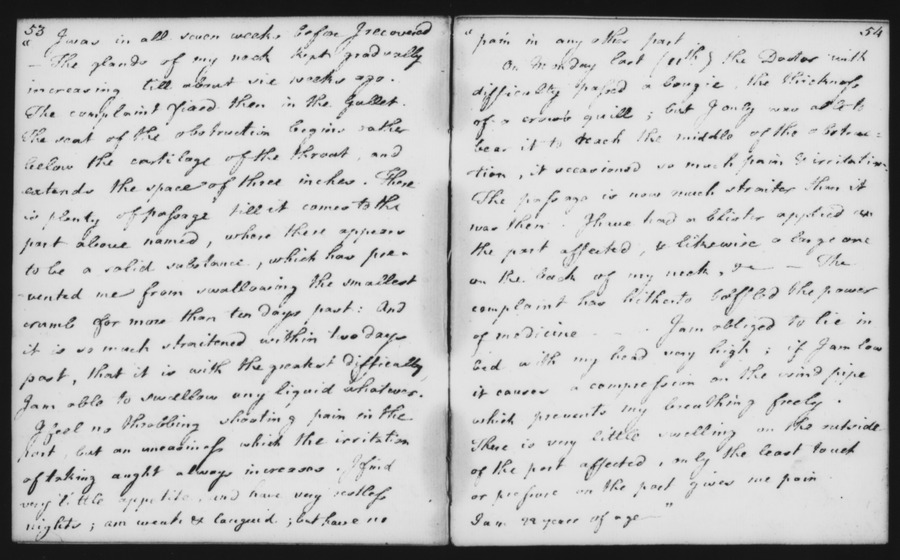 53
" I was in all seven weeks before I recovered
— The glands of my neck kept gradually
increasing till about six weeks ago.
The complaint fixed then in the Gullet.
The seat of the obstruction begins rather
below the cartilage of the throat, and
extends the space of three inches. There
is plenty of passage till it comes to the
part above named, where there appears
to be a solid substance, which has pre=
=vented me from swallowing the smallest
crumb for more than ten days past: And
it is so much straitened within two days
past, that it is with the greatest difficulty,
I am able to swallow any liquid whatever.
I feel no throbbing shooting pain in the
part, but an uneasiness which the irritation
of taking aught always increases. I find
very little appetite, and have very restless
nights; am weak & languid; but have no
54
" pain in any other part
On Monday last (11th) the Doctor with
difficulty passed a bougie, the thickness
of a crow's quill; but I only was able to
bear it to reach the middle of the obstruc=
=tion, it occasioned so much pain & irritation.
The passage is now much straiter than it
was then. I have had a blister applied on
the part affected, & likewise a large one
on the back of my neck, &c — The
complaint has hitherto baffled the power
of medicine — . I am obliged to lie in
bed with my head very high; if I am low
it causes a compression on the wind pipe
which prevents my breathing freely.
There is very little swelling on the outside
of the part affected, only the least touch
or pressure on the part gives me pain
I am years of age — "